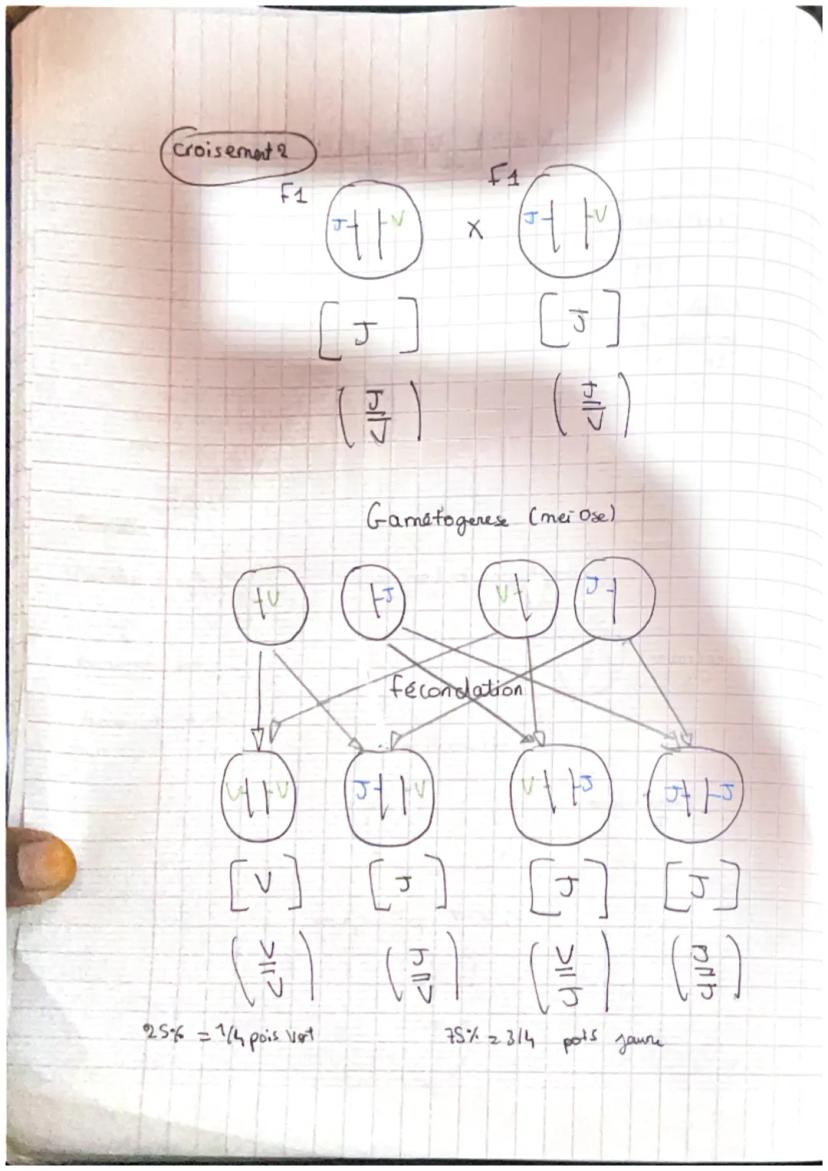 Croisement 2
F1 F1
J V x J V
[ J ] [ J ]
( J/V ) ( J/V )
Gamétogenese (meiose)
V J V J
fécondation
V V J V V J J J
[ V ] [ J ] [ J ] [ J ]
( V/V ) ( J/V ) ( V/J ) ( J/J )
25% = 1/4 pois vert 75% = 3/4 pois jaune